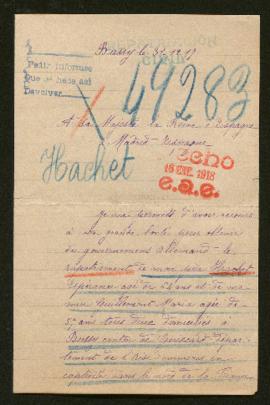 Brassy le 3-1-1918
Pedir informes
Que se hace asi
Devolver
49283
A Sa Majesté la Reine d'Espagne
Madrid Espagne
Hachet
ECHO
16 ENE. 1918
e.a.e.
Je me permets d'avoir recours
à sa grande bonté pour obtenir
du gouvernement allemand le
rapatriement de mon père Hachet
agé de 72 ans et de ma
mère Maria agée de
57 ans tous deux domiciliés à
Bussy canton de Guiscard dépar-
tement de l'Oise emmenés en
captivité dans le nord de la France